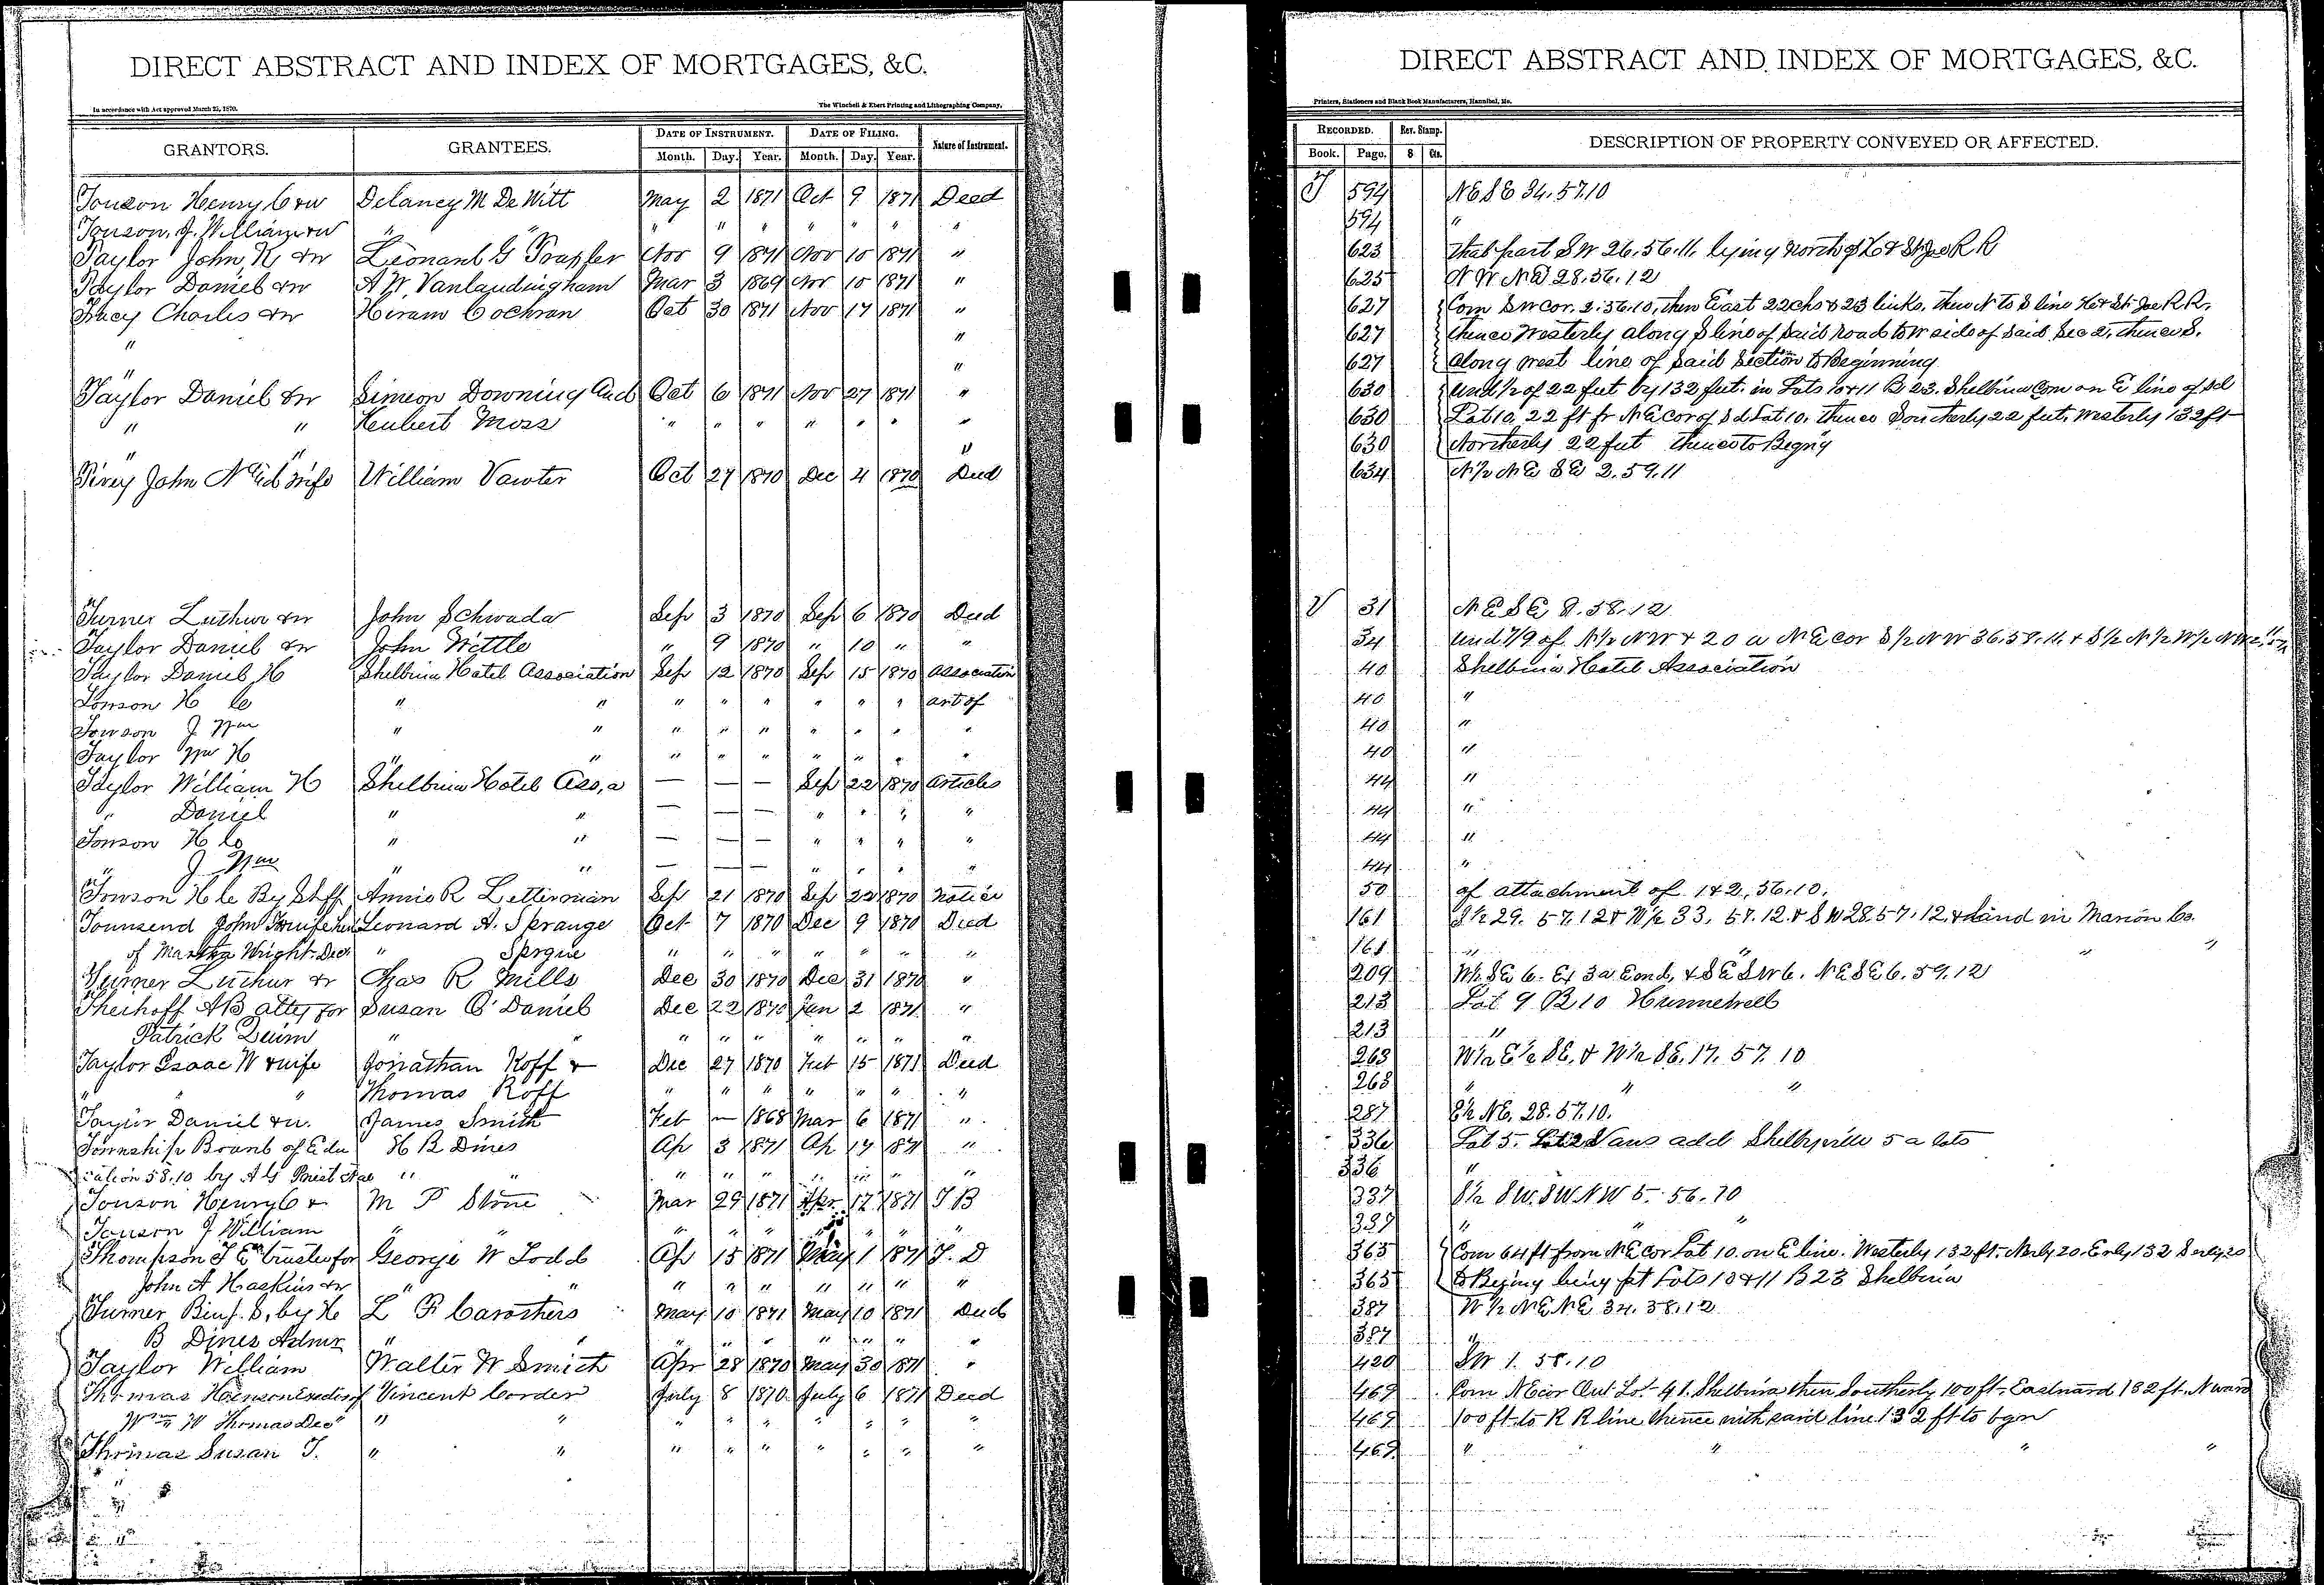 DIRECT ABSTRACT AND INDEX OF MORTGAGES, &C.
In accordance with Act approved March 25, 1870.
The Winchell & Ebert Printing and Lithographing Company,
GRANTORS. GRANTEES. DATE OF INSTRUMENT. DATE OF FILING. Nature of Instrument.
Month. Day. Year. Month. Day. Year.
Touson Henry C & w Delaney M De Witt May 2 1871 Oct 9 1871 Deed
Touson, J. William & w " " " " " " " "
Taylor John K, & w Leonard G Nov 9 1871 Nov 10 1871 "
Taylor Daniel & w A. W. Vanlandingham Mar 3 1869 Nov 10 1871 "
Charles & w Hiram Cochran Oct 30 1871 Nov 17 1871 "
" "
" "
Taylor Daniel & w Simeon Downing And Oct 6 1871 Nov 27 1871 "
" " Hubert Moss " " " " " " "
" " "
John N and wife William Vawter Oct 27 1870 Dec 4 1870 Deed
Turner Luther & w John Schwada Sep 3 1870 Sep 6 1870 Deed
Taylor Daniel & w John Wittle " 9 1870 " 10 " "
Taylor Daniel H Shelbina Hotel Association Sep 12 1870 Sep 15 1870 Association
Touson H C " " " " " " " " art of
Touson J Wm " " " " " " " " "
Taylor Wm H " " " " " " " " "
Taylor William H Shelbina Hotel Ass,a — — — Sep 22 1870 Articles
" Daniel " " — — — " " " "
Touson H C " " — — — " " " "
" J Wm " " — — — " " " "
Touson H C By Shff Annie R Letterman Sep 21 1870 Sep 22 1870 Notice
Tounsend John & wife heir Leonard A. Sprange Oct 7 1870 Dec 9 1870 Deed
of Martha Wright Decd " Sprque " " " " " " "
Turner Luther & w Chas R Mills Dec 30 1870 Dec 31 1870 "
Theihoff AB atty for Susan O' Daniel Dec 22 1870 Jan 2 1871 "
Patrick " " " " " " " " "
Taylor Isaac W & wife Jonathan Roff & Dec 27 1870 Feb 15 1871 Deed
" " Thomas Roff " " " " " " "
Taylor Daniel & w. James Smith Feb — 1868 Mar 6 1871 "
Township Board of Edu H B Dines Ap 3 1871 Ap 17 1871 "
cation 58.10 by A G Priest " " " " " " " " "
Touson Henry C & M P Stone Mar 29 1871 Apr 17 1871 T B
Touson J William " " " " " " " " "
Thompson T E trustee for George W Todd Ap 15 1871 May 1 1871 T. D
John A Haskins & w " " " " " " " " "
Turner Binf. S, by H L F Carothers May 10 1871 May 10 1871 Deed
B Dines Admr " " " " " " " "
Taylor William Walter W Smith Apr 28 1870 May 30 1871 "
Thomas Vincent Corder July 8 1870 July 6 1871 Deed
Wm W Thomas Decd " " " " " " " " "
Thomas Susan T. " " " " " " " " "
DIRECT ABSTRACT AND INDEX OF MORTGAGES, &C.
Printers, Stationers and Blank Book Manufacturers, Hannibal, Mo.
RECORDED. Rev. Stamp. DESCRIPTION OF PROPERTY CONVEYED OR AFFECTED.
Book. Page. $ Cts.
T 594 NE SE 34.57.10
594 "
623 that part SW 26.56.11, lying north of H & St Joe R R
625 N W NE 28.56.12
627 Com SW cor. 2.56.10, then East 22chs & 23 links, then N to S line H & St Joe R R,
627 thence Westerly along S line of said road to W side of said Sec 2, thence S.
627 along west line of said section to Beginning
630 Und 1/2 of 22 feet by 132 feet. in Lots 10 & 11 B 23. Shelbina Com on E line of sd
630 Lot 10, 22 ft fr NE cor of sd Lot 10, thence Southerly 22 feet, westerly 132 ft
630 Northerly 22 feet thence to Begng
634 N 1/2 NE SE 2.59.11
V 31 NE SE 8.58.12
34 Und 7/9 of N 1/2 NW & 20 a NE cor S 1/2 NW 36.58.11 & S 1/2 N 1/2 W 1/2
40 Shelbina Hotel Association
40 "
40 "
40 "
44 "
44 "
44 "
44 "
50 of attachment of 1 & 2, 56.10.
161 S 1/2 29. 57.12 & W 1/2 33. 57.12 & S W 28.57.12, & land in Marion Co.
161 " " " "
209 W 1/2 SE 6. Ex 3a E end, & SE SW 6. NE SE 6. 59.12
213 Lot 9 B 10 Hunnewell
213 "
263 W 1/2 E 1/2 SE, & W 1/2 SE. 17. 57 10
263 " " "
287 S 1/2 NE. 28. 57.10.
336 Lot 5. Vans add Shelbyville 5 a lots
336 "
337 S 1/2 SW. SW NW 5. 56.10
337 " " "
363 Com 64 ft from NE cor Lot 10. on E line. Westerly 132 ft. Nerly 20. Eerly 132 Serly 20
363 to Beging being pt Lots 10 & 11 B 23 Shelbina
387 W 1/2 NE NE 34. 58.12
387 "
420 SW 1. 58.10
467 Com NE cor Out Lot 41. Shelbina then Southerly 100 ft. Eastward 132 ft. N ward
467 100 ft to R R line thence with said line 132 ft to bgn
467 " " " "